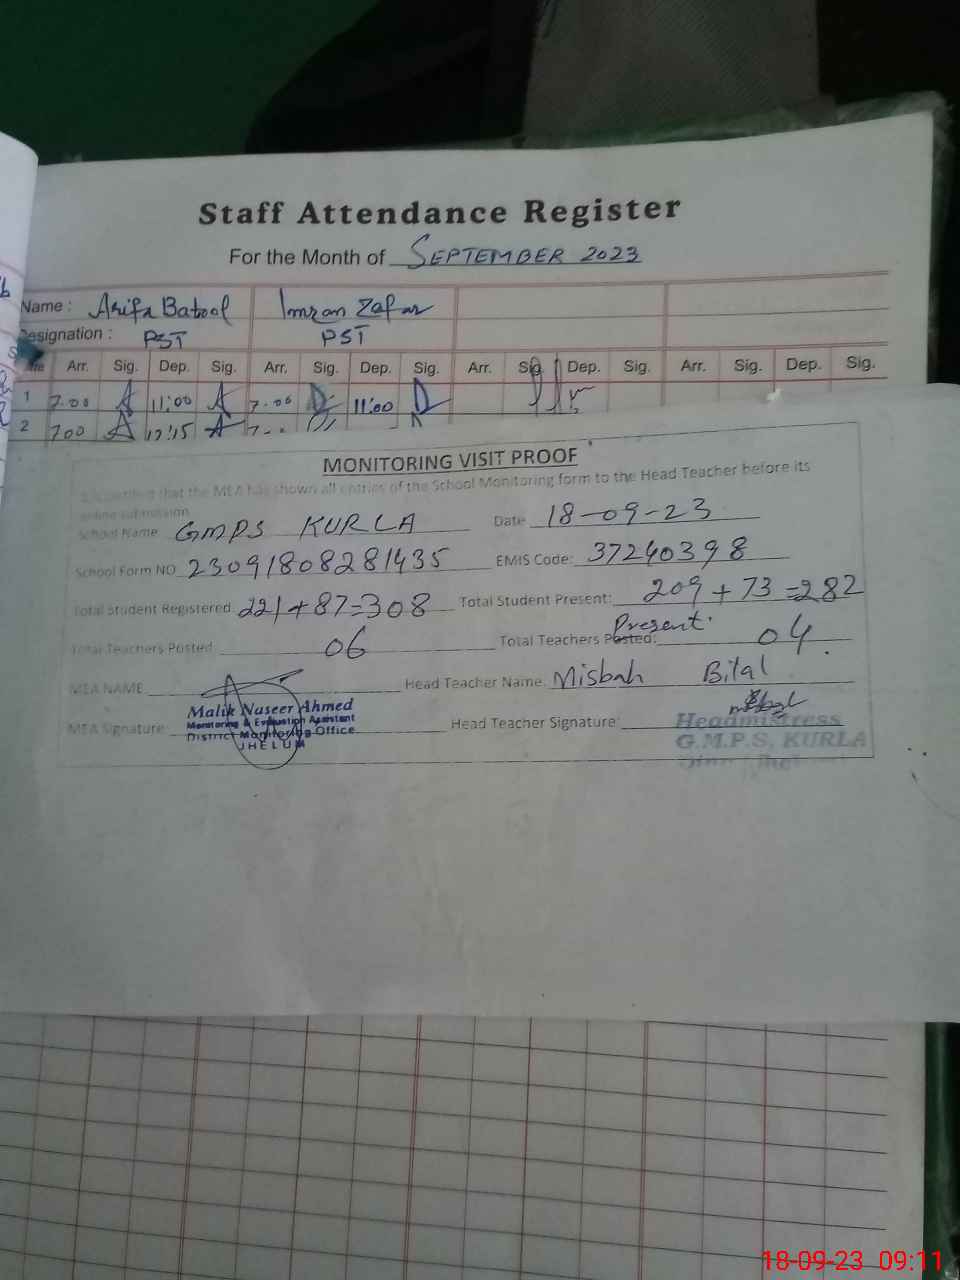 Staff Attendance Register
For the Month of SEPTEMBER 2023
Name : Arifa Batool Imran Zafar
Designation : PST PST
Arr. Sig. Dep. Sig. Arr. Sig. Dep. Sig. Arr. Sig. Dep. Sig. Arr. Sig. Dep. Sig.
1 7.00 A 11:00 A 7.00 11:00
2 700 A 12:15 A 7.
MONITORING VISIT PROOF
It is certified that the MEA has shown all entries of the School Monitoring form to the Head Teacher before its
online submission
School Name GMPS KURLA Date 18-09-23
School Form NO 23091808281435 EMIS Code: 37240398
Total Student Registered: 221+87=308 Total Student Present: 209+73=282
Total Teachers Posted 06 Total Teachers Posted: Present. 04.
MEA NAME Head Teacher Name: Misbah Bilal
Malik Naseer Ahmed
Monitoring & Evaluation Assistant
District Monitoring Office
JHELUM
MEA Signature: Head Teacher Signature:
Headmistress
G.M.P.S, KURLA
18-09-23 09:11